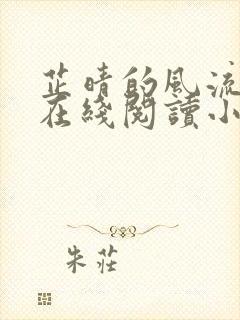 芷晴的风流
在綫閱讀小
朱莊